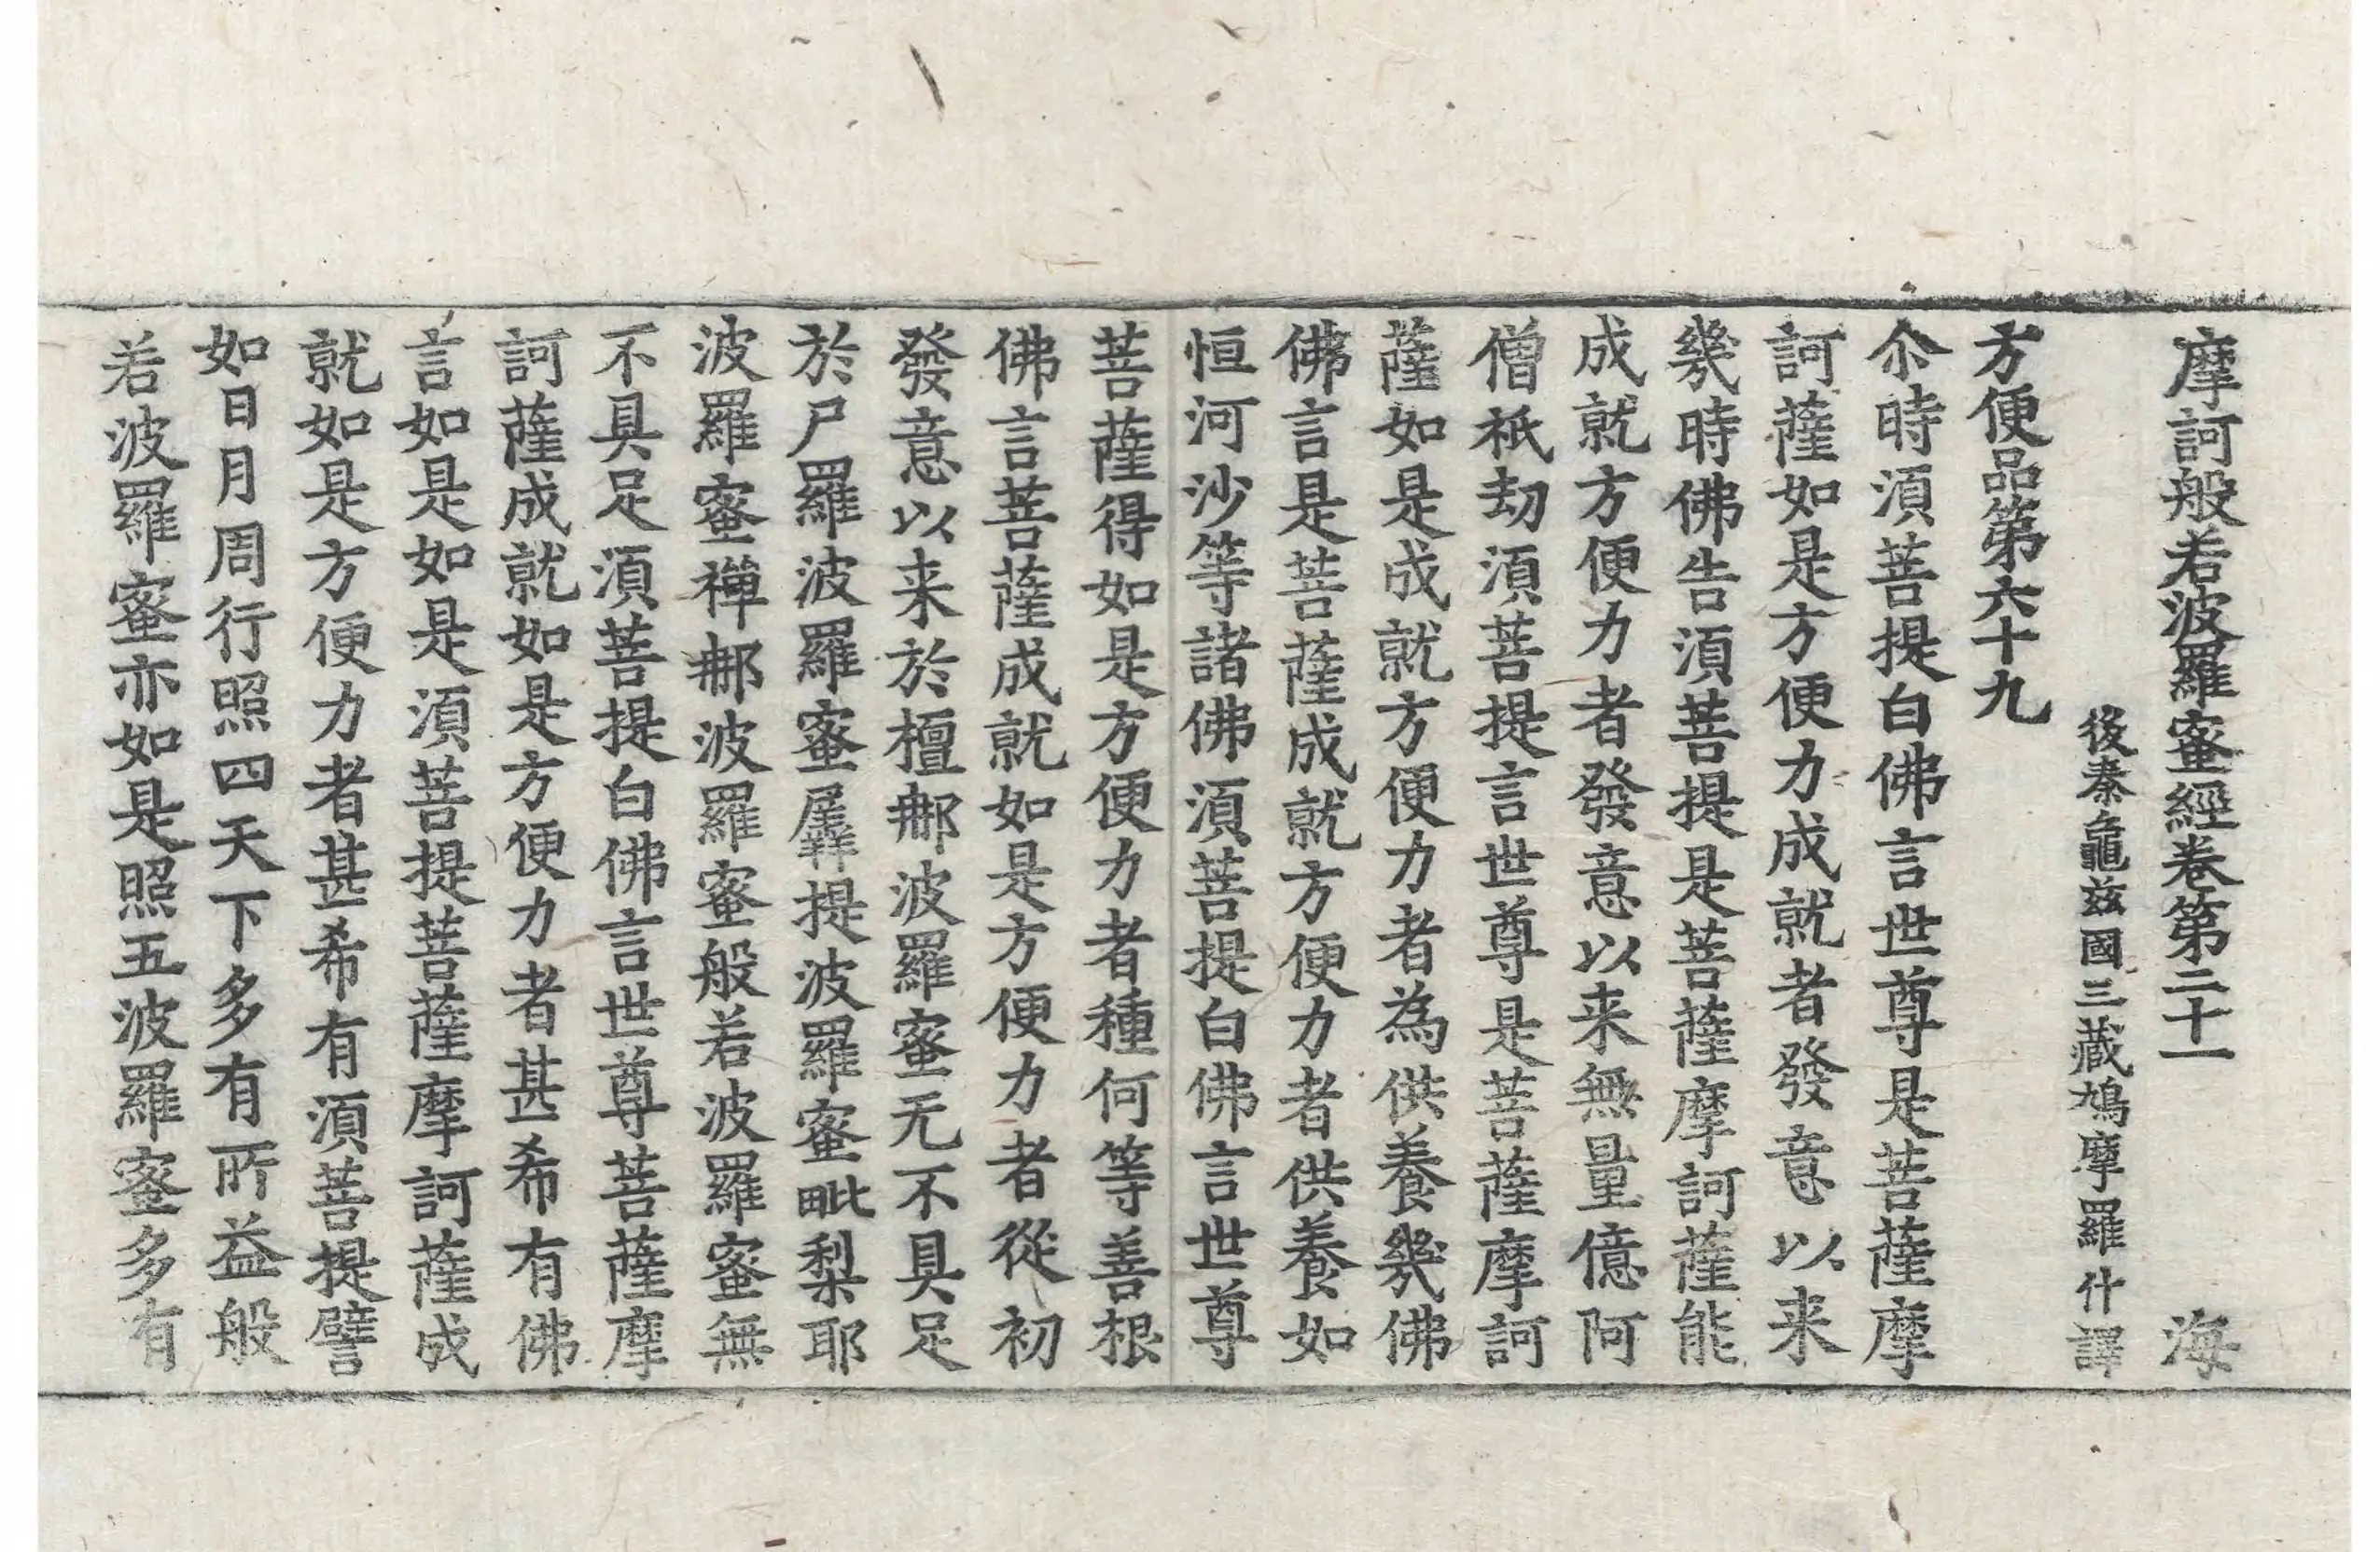 摩訶般若波羅蜜經卷第二十一 海
後秦龜玆國三藏鳩摩羅什譯
方便品第六十九
尒時湏菩提白佛言世尊是菩薩摩
訶薩如是方便力成就者發意以来
幾時佛告湏菩提是菩薩摩訶薩能
成就方便力者發意以来無量億阿
僧祇劫湏菩提言世尊是菩薩摩訶
薩如是成就方便力者為供養幾佛
佛言是菩薩成就方便力者供養如
恒河沙等諸佛湏菩提白佛言世尊
菩薩得如是方便力者種何等善根
佛言菩薩成就如是方便力者從初
發意以来於檀郍波羅蜜无不具足
於尸羅波羅蜜羼提波羅蜜毗梨耶
波羅蜜禪郍波羅蜜般若波羅蜜無
不具足湏菩提白佛言世尊菩薩摩
訶薩成就如是方便力者甚希有佛
言如是如是湏菩提菩薩摩訶薩成
就如是方便力者甚希有湏菩提譬
如日月周行照四天下多有所益般
若波羅蜜亦如是照五波羅蜜多有